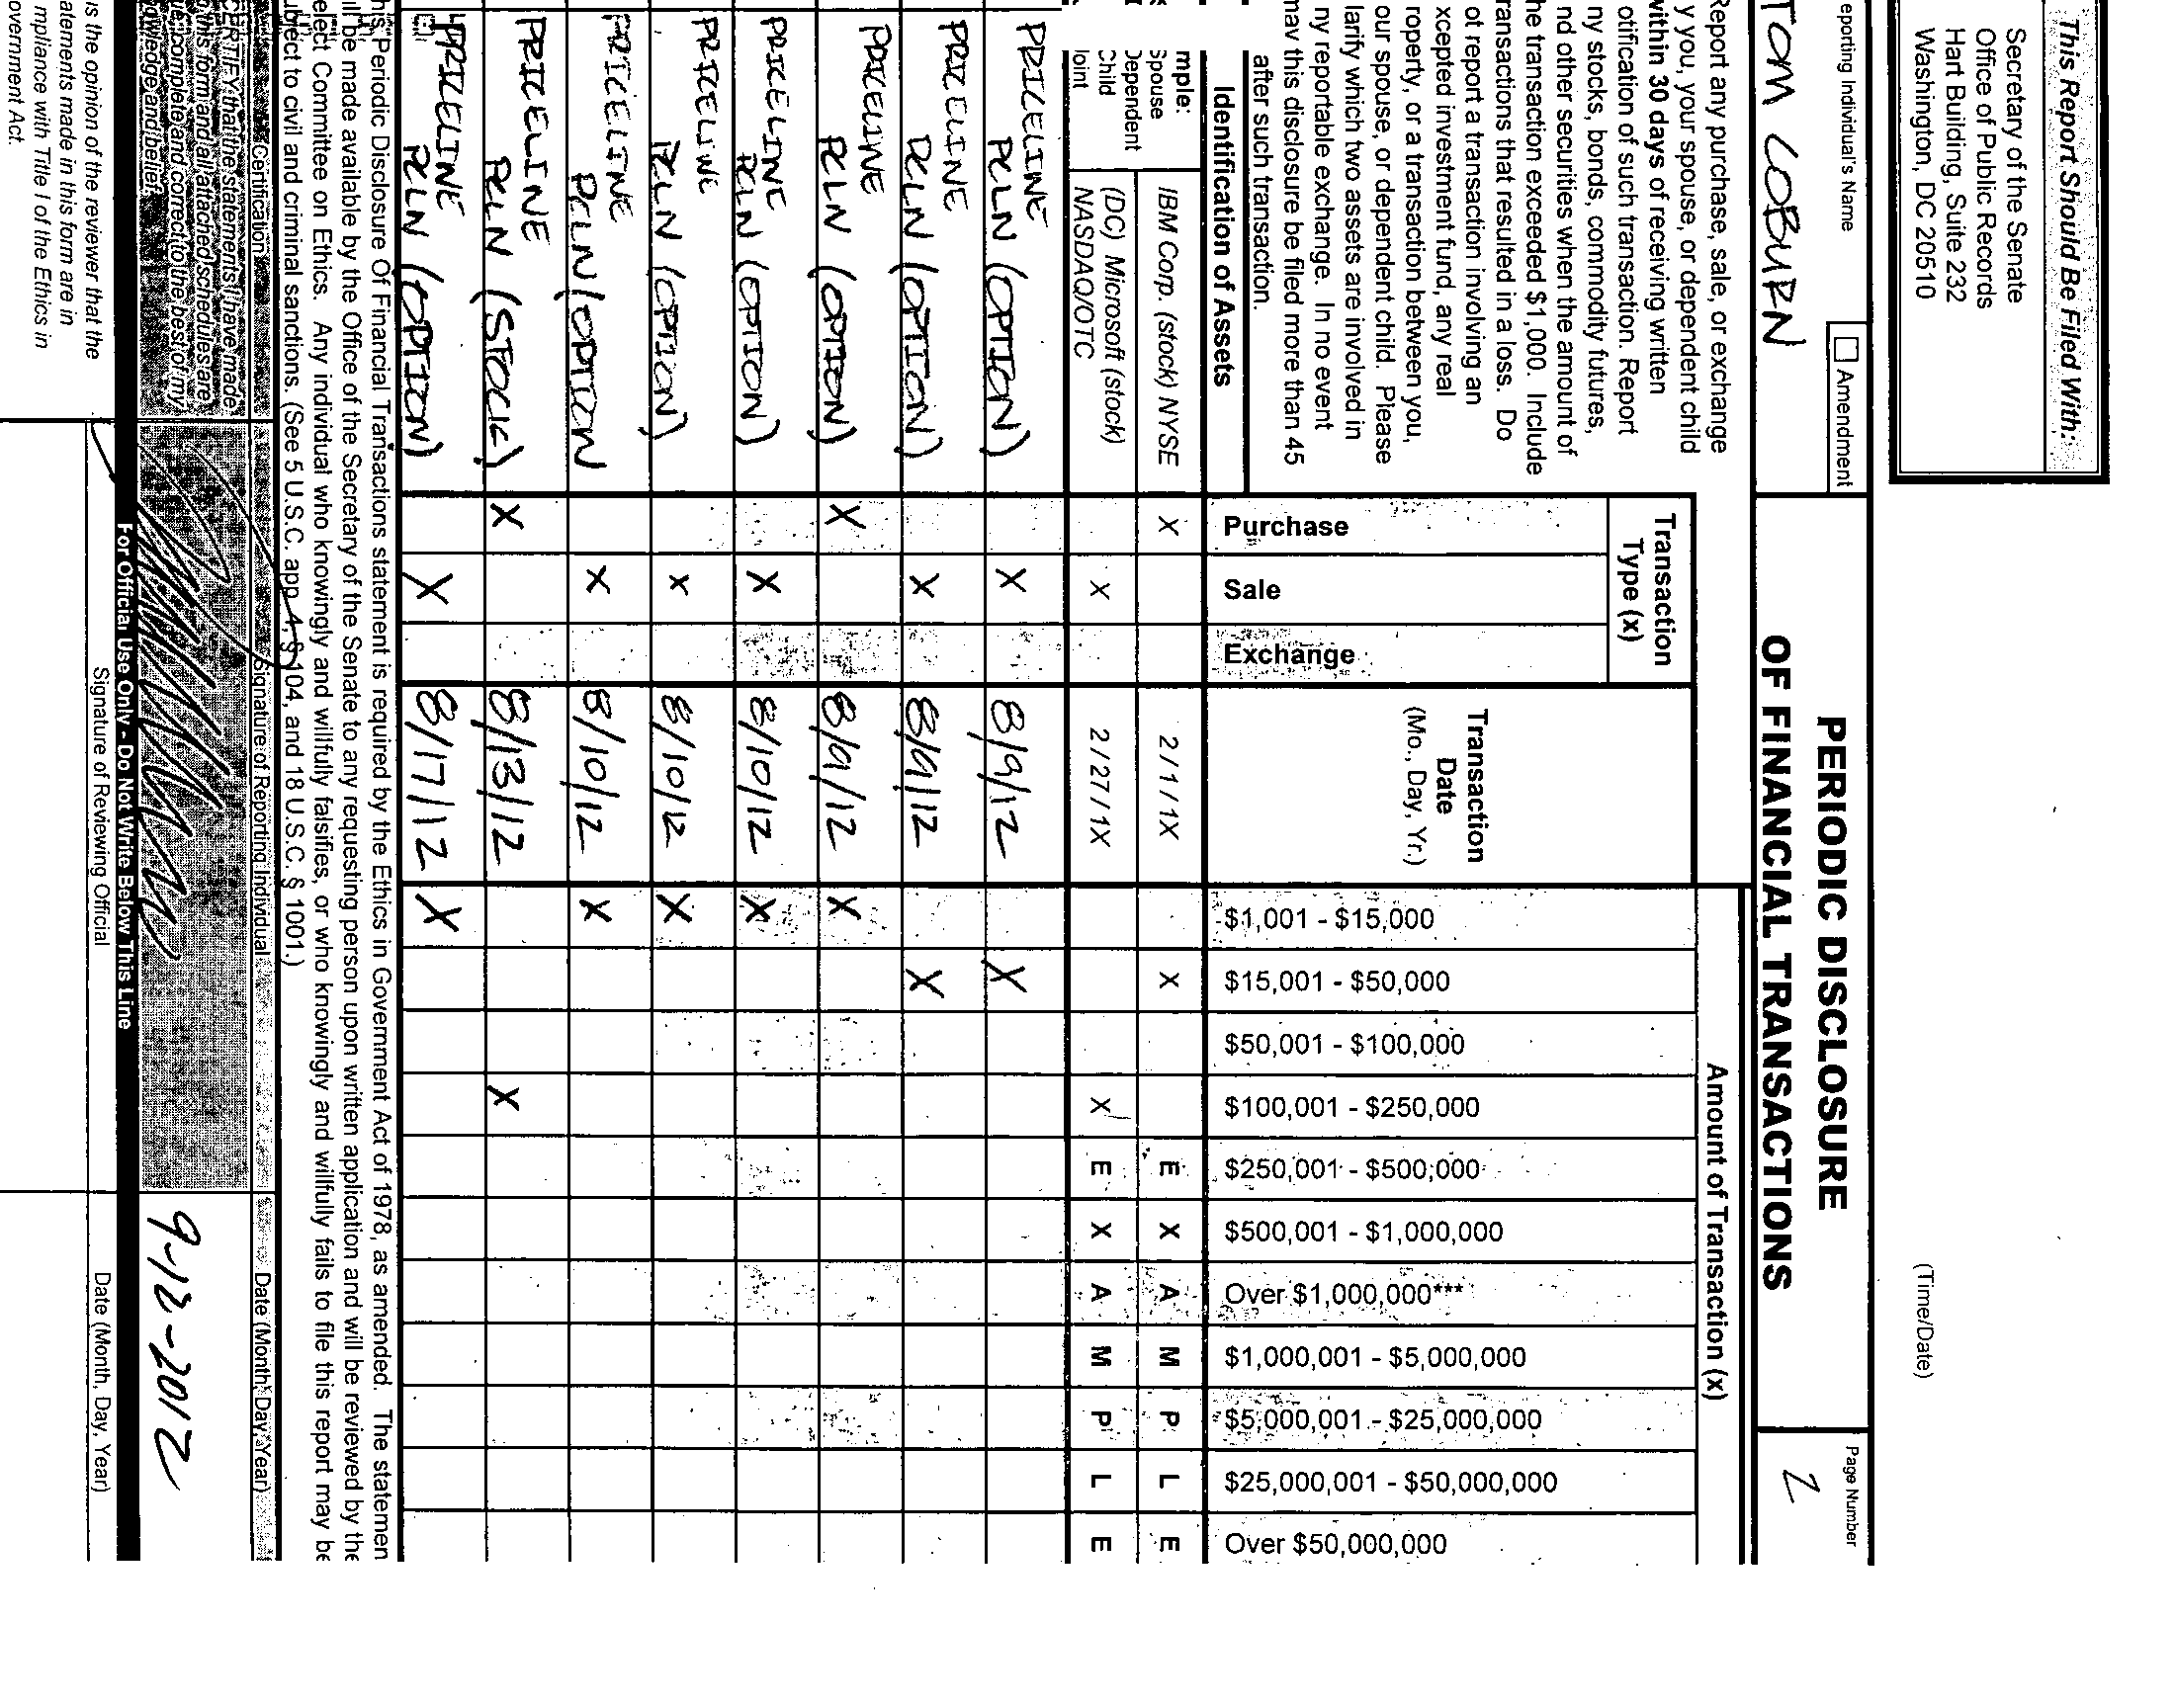 This Report Should Be Filed With:
Secretary of the Senate
Office of Public Records
Hart Building, Suite 232
Washington, DC 20510
(Time/Date)
eporting Individual's Name
Amendment
TOM COBURN
PERIODIC DISCLOSURE
OF FINANCIAL TRANSACTIONS
Page Number
2
Report any purchase, sale, or exchange
y you, your spouse, or dependent child
within 30 days of receiving written
otification of such transaction. Report
ny stocks, bonds, commodity futures,
nd other securities when the amount of
he transaction exceeded $1,000. Include
ransactions that resulted in a loss. Do
ot report a transaction involving an
xcepted investment fund, any real
roperty, or a transaction between you,
our spouse, or dependent child. Please
larify which two assets are involved in
ny reportable exchange. In no event
may this disclosure be filed more than 45
after such transaction.
Identification of Assets
Transaction
Type (x)
Purchase
Sale
Exchange
Transaction
Date
(Mo., Day, Yr.)
Amount of Transaction (x)
$1,001 - $15,000
$15,001 - $50,000
$50,001 - $100,000
$100,001 - $250,000
$250,001 - $500,000
$500,001 - $1,000,000
Over $1,000,000***
$1,000,001 - $5,000,000
$5,000,001 - $25,000,000
$25,000,001 - $50,000,000
Over $50,000,000
mple:
Spouse
Dependent
Child
Joint
IBM Corp. (stock) NYSE X 2/1/1X X E X A M P L E
(DC) Microsoft (stock)
NASDAQ/OTC X 2/27/1X X E X A M P L E
PRICELINE
PCLN (OPTION) X 8/9/12 X
PRICELINE
PCLN (OPTION) X 8/9/12 X
PRICELINE
PCLN (OPTION) X 8/9/12 X
PRICELINE
PCLN (OPTION) X 8/10/12 X
PRICELINE
PCLN (OPTION) X 8/10/12 X
PRICELINE
PCLN (OPTION X 8/10/12 X
PRICELINE
PCLN (STOCK) X 8/13/12 X
PRICELINE
PCLN (OPTION) X 8/17/12 X
his Periodic Disclosure Of Financial Transactions statement is required by the Ethics in Government Act of 1978, as amended. The statemen
ll be made available by the Office of the Secretary of the Senate to any requesting person upon written application and will be reviewed by the
elect Committee on Ethics. Any individual who knowingly and willfully falsifies, or who knowingly and willfully fails to file this report may be
ubject to civil and criminal sanctions. (See 5 U.S.C. app. 4, § 104, and 18 U.S.C. § 1001.)
Certification
Signature of Reporting Individual
Date (Month, Day, Year)
CERTIFY that the statements I have made
this form and all attached schedules are
ue, complete and correct to the best of my
owledge and belief.
9-12-2012
For Official Use Only - Do Not Write Below This Line
is the opinion of the reviewer that the
atements made in this form are in
mpliance with Title I of the Ethics in
overnment Act.
Signature of Reviewing Official
Date (Month, Day, Year)